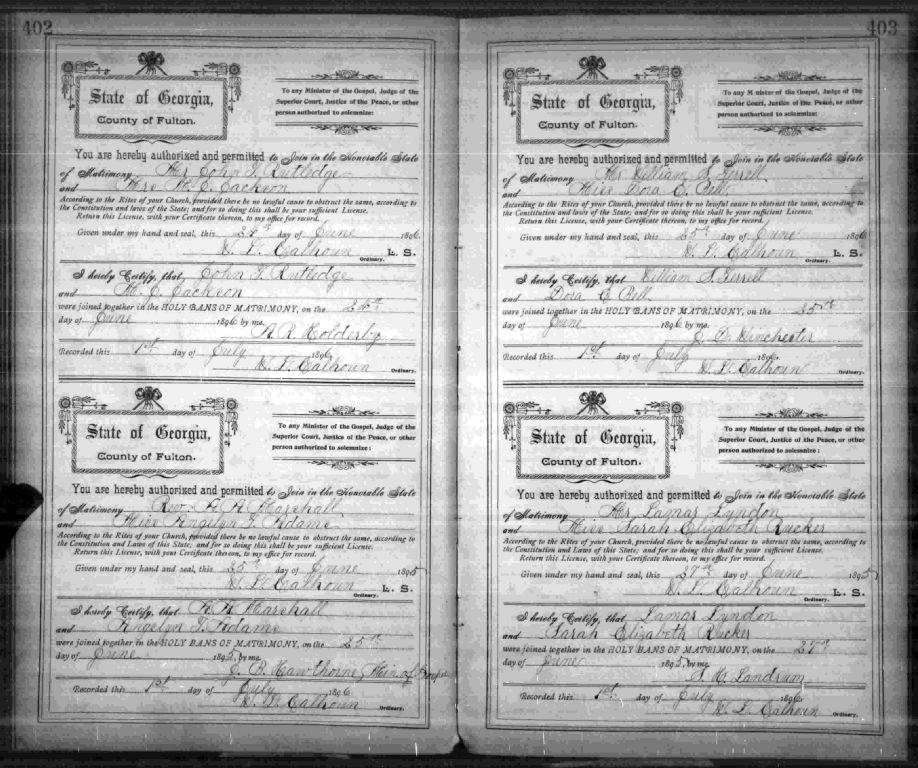 402
State of Georgia,
County of Fulton.
To any Minister of the Gospel, Judge of the
Superior Court, Justice of the Peace, or other
person authorized to solemnize:
You are hereby authorized and permitted to Join in the Honorable State
of Matrimony Mr John T. Rutledge
and Mrs M. E. Jackson
According to the Rites of your Church, provided there be no lawful cause to obstruct the same, according to
the Constitution and laws of the State; and for so doing this shall be your sufficient License.
Return this License, with your Certificate thereon, to my office for record.
Given under my hand and seal, this day of June 1896
W. L. Calhoun L. S.
Ordinary.
I hereby Certify, that John T. Rutledge
and M. E. Jackson
were joined together in the HOLY BANS OF MATRIMONY, on the
day of June 1896 by me,
A. R. Holderby
Recorded this 1st day of July 1896
W. L. Calhoun
Ordinary.
State of Georgia,
County of Fulton.
To any Minister of the Gospel, Judge of the
Superior Court, Justice of the Peace, or other
person authorized to solemnize:
You are hereby authorized and permitted to Join in the Honorable State
of Matrimony Rev. A. A. Marshall
and Miss Angelyn T. Adams
According to the Rites of your Church, provided there be no lawful cause to obstruct the same, according to
the Constitution and Laws of this State; and for so doing this shall be your sufficient License.
Return this License, with your Certificate thereon, to my office for record.
Given under my hand and seal, this 25th day of June 1895
W. L. Calhoun L. S.
I hereby Certify, that A. A. Marshall
and Angelyn T. Adams
were joined together in the HOLY BANS OF MATRIMONY, on the 25th
day of June 1895, by me,
J. B. Hawthorne, Min of Gospel
Recorded this 1st day of July 1896
W. L. Calhoun Ordinary.
403
State of Georgia,
County of Fulton.
To any Minister of the Gospel, Judge of the
Superior Court, Justice of the Peace, or other
person authorized to solemnize:
You are hereby authorized and permitted to Join in the Honorable State
of Matrimony Mr William S. Terrell
and Miss Dora E.
According to the Rites of your Church, provided there be no lawful cause to obstruct the same, according to
the Constitution and laws of the State; and for so doing this shall be your sufficient License.
Return this License, with your Certificate thereon, to my office for record.
Given under my hand and seal, this 25th day of June 1896
W. L. Calhoun L. S.
Ordinary.
I hereby Certify, that William S. Terrell
and Dora E.
were joined together in the HOLY BANS OF MATRIMONY, on the 25th
day of June 1896 by me,
J. D. Winchester
Recorded this 1st day of July 1896
W. L. Calhoun
Ordinary.
State of Georgia,
County of Fulton.
To any Minister of the Gospel, Judge of the
Superior Court, Justice of the Peace, or other
person authorized to solemnize:
You are hereby authorized and permitted to Join in the Honorable State
of Matrimony Mr Lamar Lyndon
and Miss Sarah Elizabeth Rucker
According to the Rites of your Church, provided there be no lawful cause to obstruct the same, according to
the Constitution and Laws of this State; and for so doing this shall be your sufficient License.
Return this License, with your Certificate thereon, to my office for record.
Given under my hand and seal, this 27th day of June 1895
W. L. Calhoun L. S.
I hereby Certify, that Lamar Lyndon
and Sarah Elizabeth Rucker
were joined together in the HOLY BANS OF MATRIMONY, on the 27th
day of June 1895, by me,
S. M. Landrum
Recorded this 1st day of July 1896
W. L. Calhoun Ordinary.